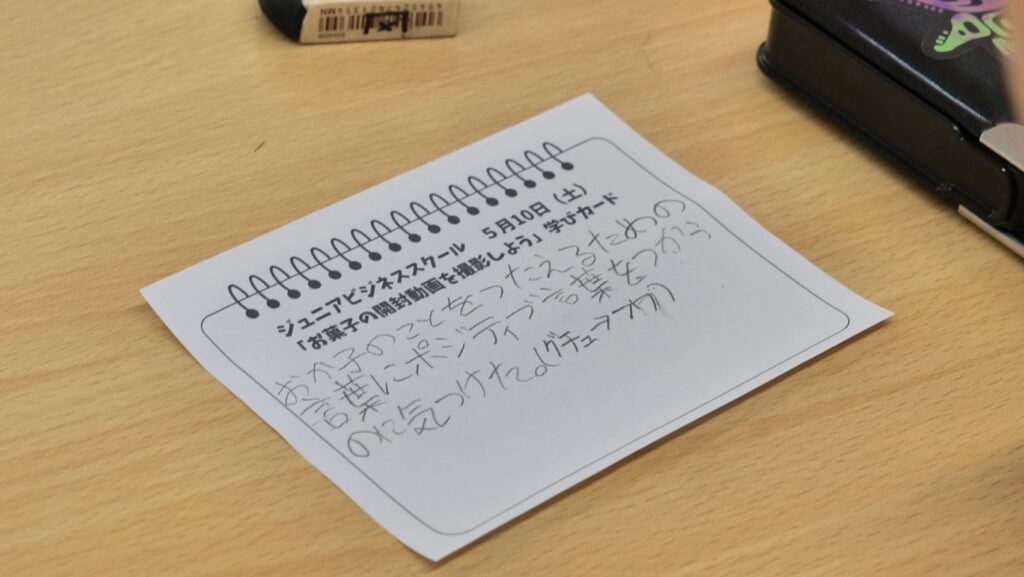 ジュニアビジネススクール 5月10日（土）
「お菓子の開封動画を撮影しよう」学びカード
おか子のことをつたえるための
言葉にポジティブ言葉をつかう
のに気つけたよ